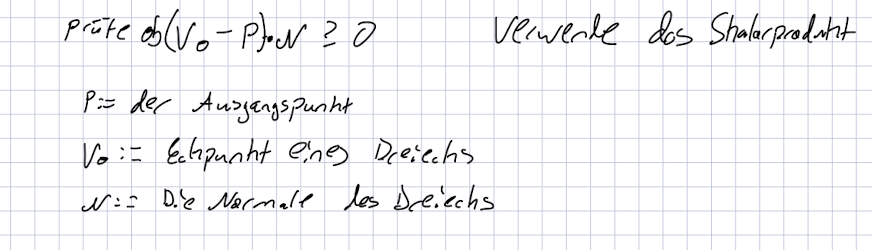 Prüfe ob (V₀ - P) • N ≥ 0 Verwende das Skalarprodukt
P := der Ausgangspunkt
V₀ := Eckpunkt eines Dreiecks
N := Die Normale des Dreiecks